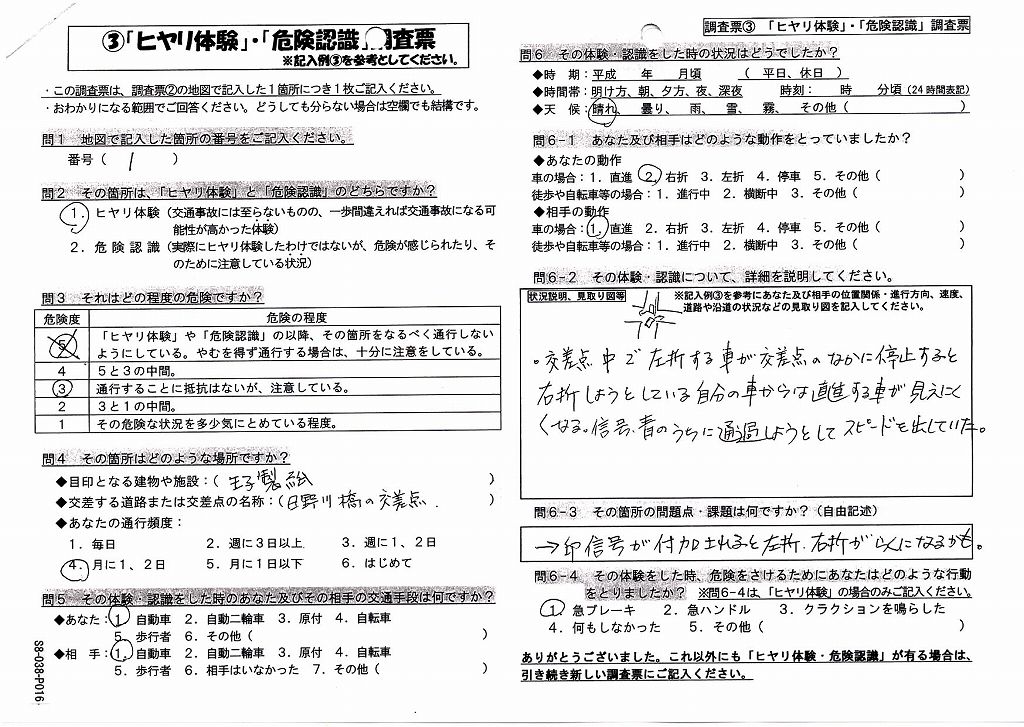 ③「ヒヤリ体験」・「危険認識」調査票
※記入例③を参考としてください。
・この調査票は、調査票②の地図で記入した1箇所につき1枚ご記入ください。
・おわかりになる範囲でご回答ください。どうしても分らない場合は空欄でも結構です。
問1 地図で記入した箇所の番号をご記入ください。
番号（ 1 ）
問2 その箇所は、「ヒヤリ体験」と「危険認識」のどちらですか？
1．ヒヤリ体験（交通事故には至らないものの、一歩間違えれば交通事故になる可
能性が高かった体験）
2．危険認識（実際にヒヤリ体験したわけではないが、危険が感じられたり、そ
のために注意している状況）
問3 それはどの程度の危険ですか？
危険度 危険の程度
5 「ヒヤリ体験」や「危険認識」の以降、その箇所をなるべく通行しない
ようにしている。やむを得ず通行する場合は、十分に注意をしている。
4 5と3の中間。
3 通行することに抵抗はないが、注意している。
2 3と1の中間。
1 その危険な状況を多少気にとめている程度。
問4 その箇所はどのような場所ですか？
◆目印となる建物や施設：（ 王子製紙 ）
◆交差する道路または交差点の名称：（日野川橋の交差点． ）
◆あなたの通行頻度：
1．毎日 2．週に3日以上 3．週に1、2日
4．月に1、2日 5．月に1日以下 6．はじめて
問5 その体験・認識をした時のあなた及びその相手の交通手段は何ですか？
◆あなた：1．自動車 2．自動二輪車 3．原付 4．自転車
5．歩行者 6．その他（ ）
◆相 手：1．自動車 2．自動二輪車 3．原付 4．自転車
5．歩行者 6．相手はいなかった 7．その他（ ）
S8-038-P016
調査票③ 「ヒヤリ体験」・「危険認識」調査票
問6 その体験・認識をした時の状況はどうでしたか？
◆時 期：平成 年 月頃 （ 平日、休日 ）
◆時間帯：明け方、朝、夕方、夜、深夜 時刻： 時 分頃（24時間表記）
◆天 候：晴れ、曇り、雨、雪、霧、その他（ ）
問6-1 あなた及び相手はどのような動作をとっていましたか？
◆あなたの動作
車の場合：1．直進 2．右折 3．左折 4．停車 5．その他（ ）
徒歩や自転車等の場合：1．進行中 2．横断中 3．その他（ ）
◆相手の動作
車の場合：1．直進 2．右折 3．左折 4．停車 5．その他（ ）
徒歩や自転車等の場合：1．進行中 2．横断中 3．その他（ ）
問6-2 その体験・認識について、詳細を説明してください。
状況説明、見取り図等 ※記入例③を参考にあなた及び相手の位置関係・進行方向、速度、
道路や沿道の状況などの見取り図を記入してください。
。交差点中で左折する車が交差点のなかに停止すると
右折しようとしている自分の車からは直進する車が見えにく
くなる。信号、青のうちに通過しようとしてスピードも出していた。
問6-3 その箇所の問題点・課題は何ですか？（自由記述）
→印信号が付加されると左折、右折がらくになるかも。
問6-4 その体験をした時、危険をさけるためにあなたはどのような行動
をとりましたか？ ※問6-4は、「ヒヤリ体験」の場合のみご記入ください。
1．急ブレーキ 2．急ハンドル 3．クラクションを鳴らした
4．何もしなかった 5．その他（ ）
ありがとうございました。これ以外にも「ヒヤリ体験・危険認識」が有る場合は、
引き続き新しい調査票にご記入ください。